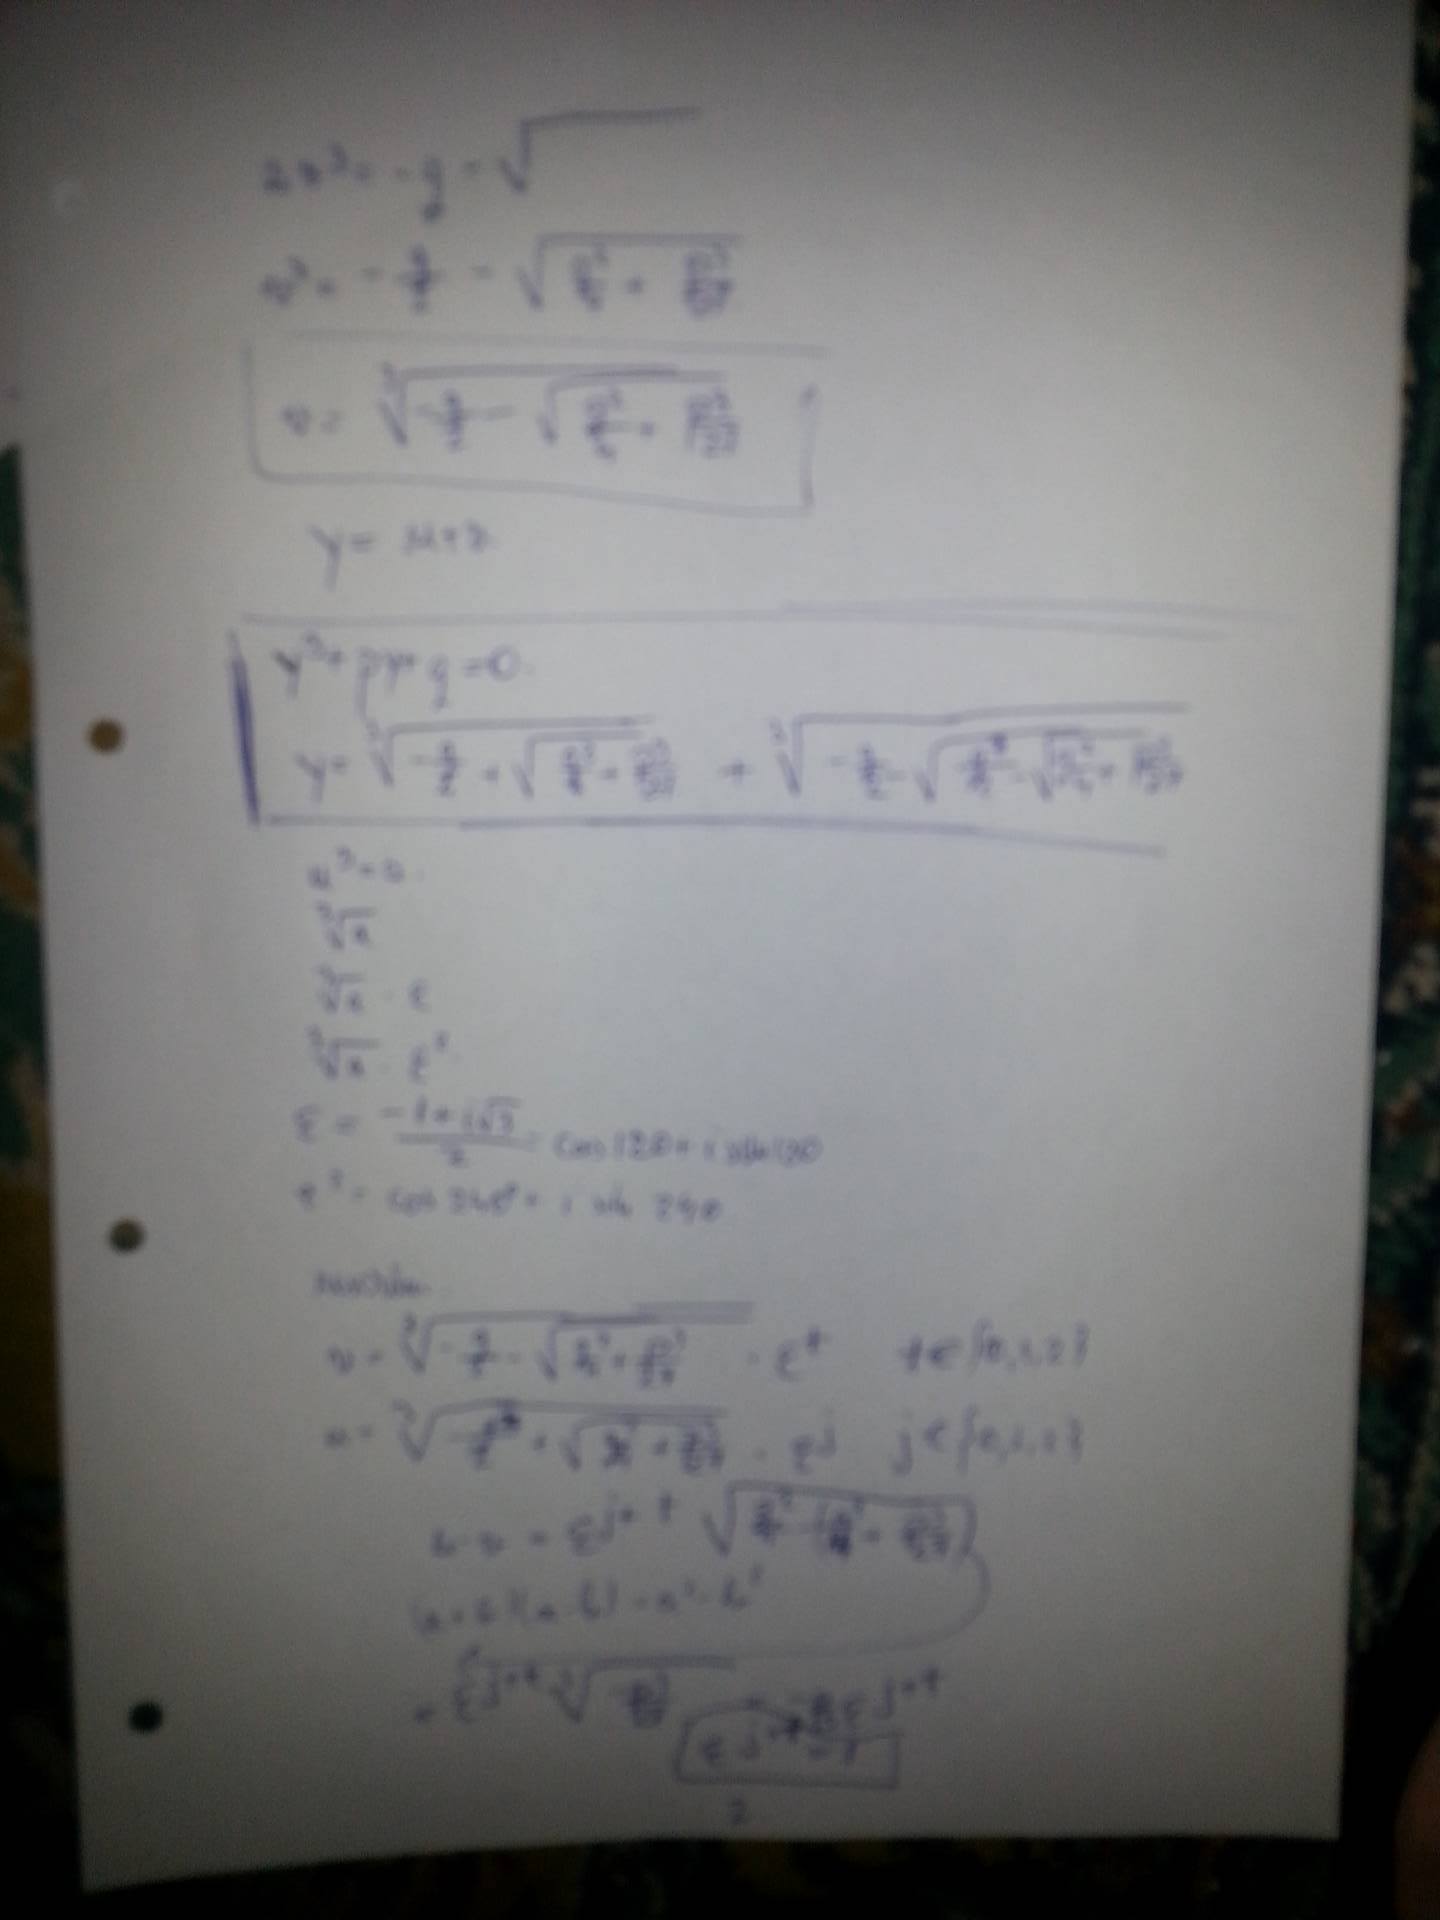 2v³ = -q - √
v³ = -q/2 - √(q²/4 + p³/27)
v = ∛(-q/2 - √(q²/4 + p³/27))
y = u+v
y³ + py + q = 0.
y = ∛(-q/2 + √(q²/4 + p³/27)) + ∛(-q/2 - √(q²/4 + p³/27))
u³ = a
∛a
∛a · ε
∛a · ε²
ε = (-1+i√3)/2 = cos 120 + i sin 120
ε² = cos 240° + i sin 240
v = ∛(-q/2 - √(q²/4 + p³/27)) · ε^t t ∈ {0,1,2}
u = ∛(-q/2 + √(q²/4 + p³/27)) · ε^j j ∈ {0,1,2}
u·v = ε^(j+t) √(q²/4 - (q²/4 + p³/27))
(a+b)(a-b) = a² - b²
= ε^(j+t) ∛(-p³/27) = -p/3 ε^(j+t)
ε^(j+t) = 1
2